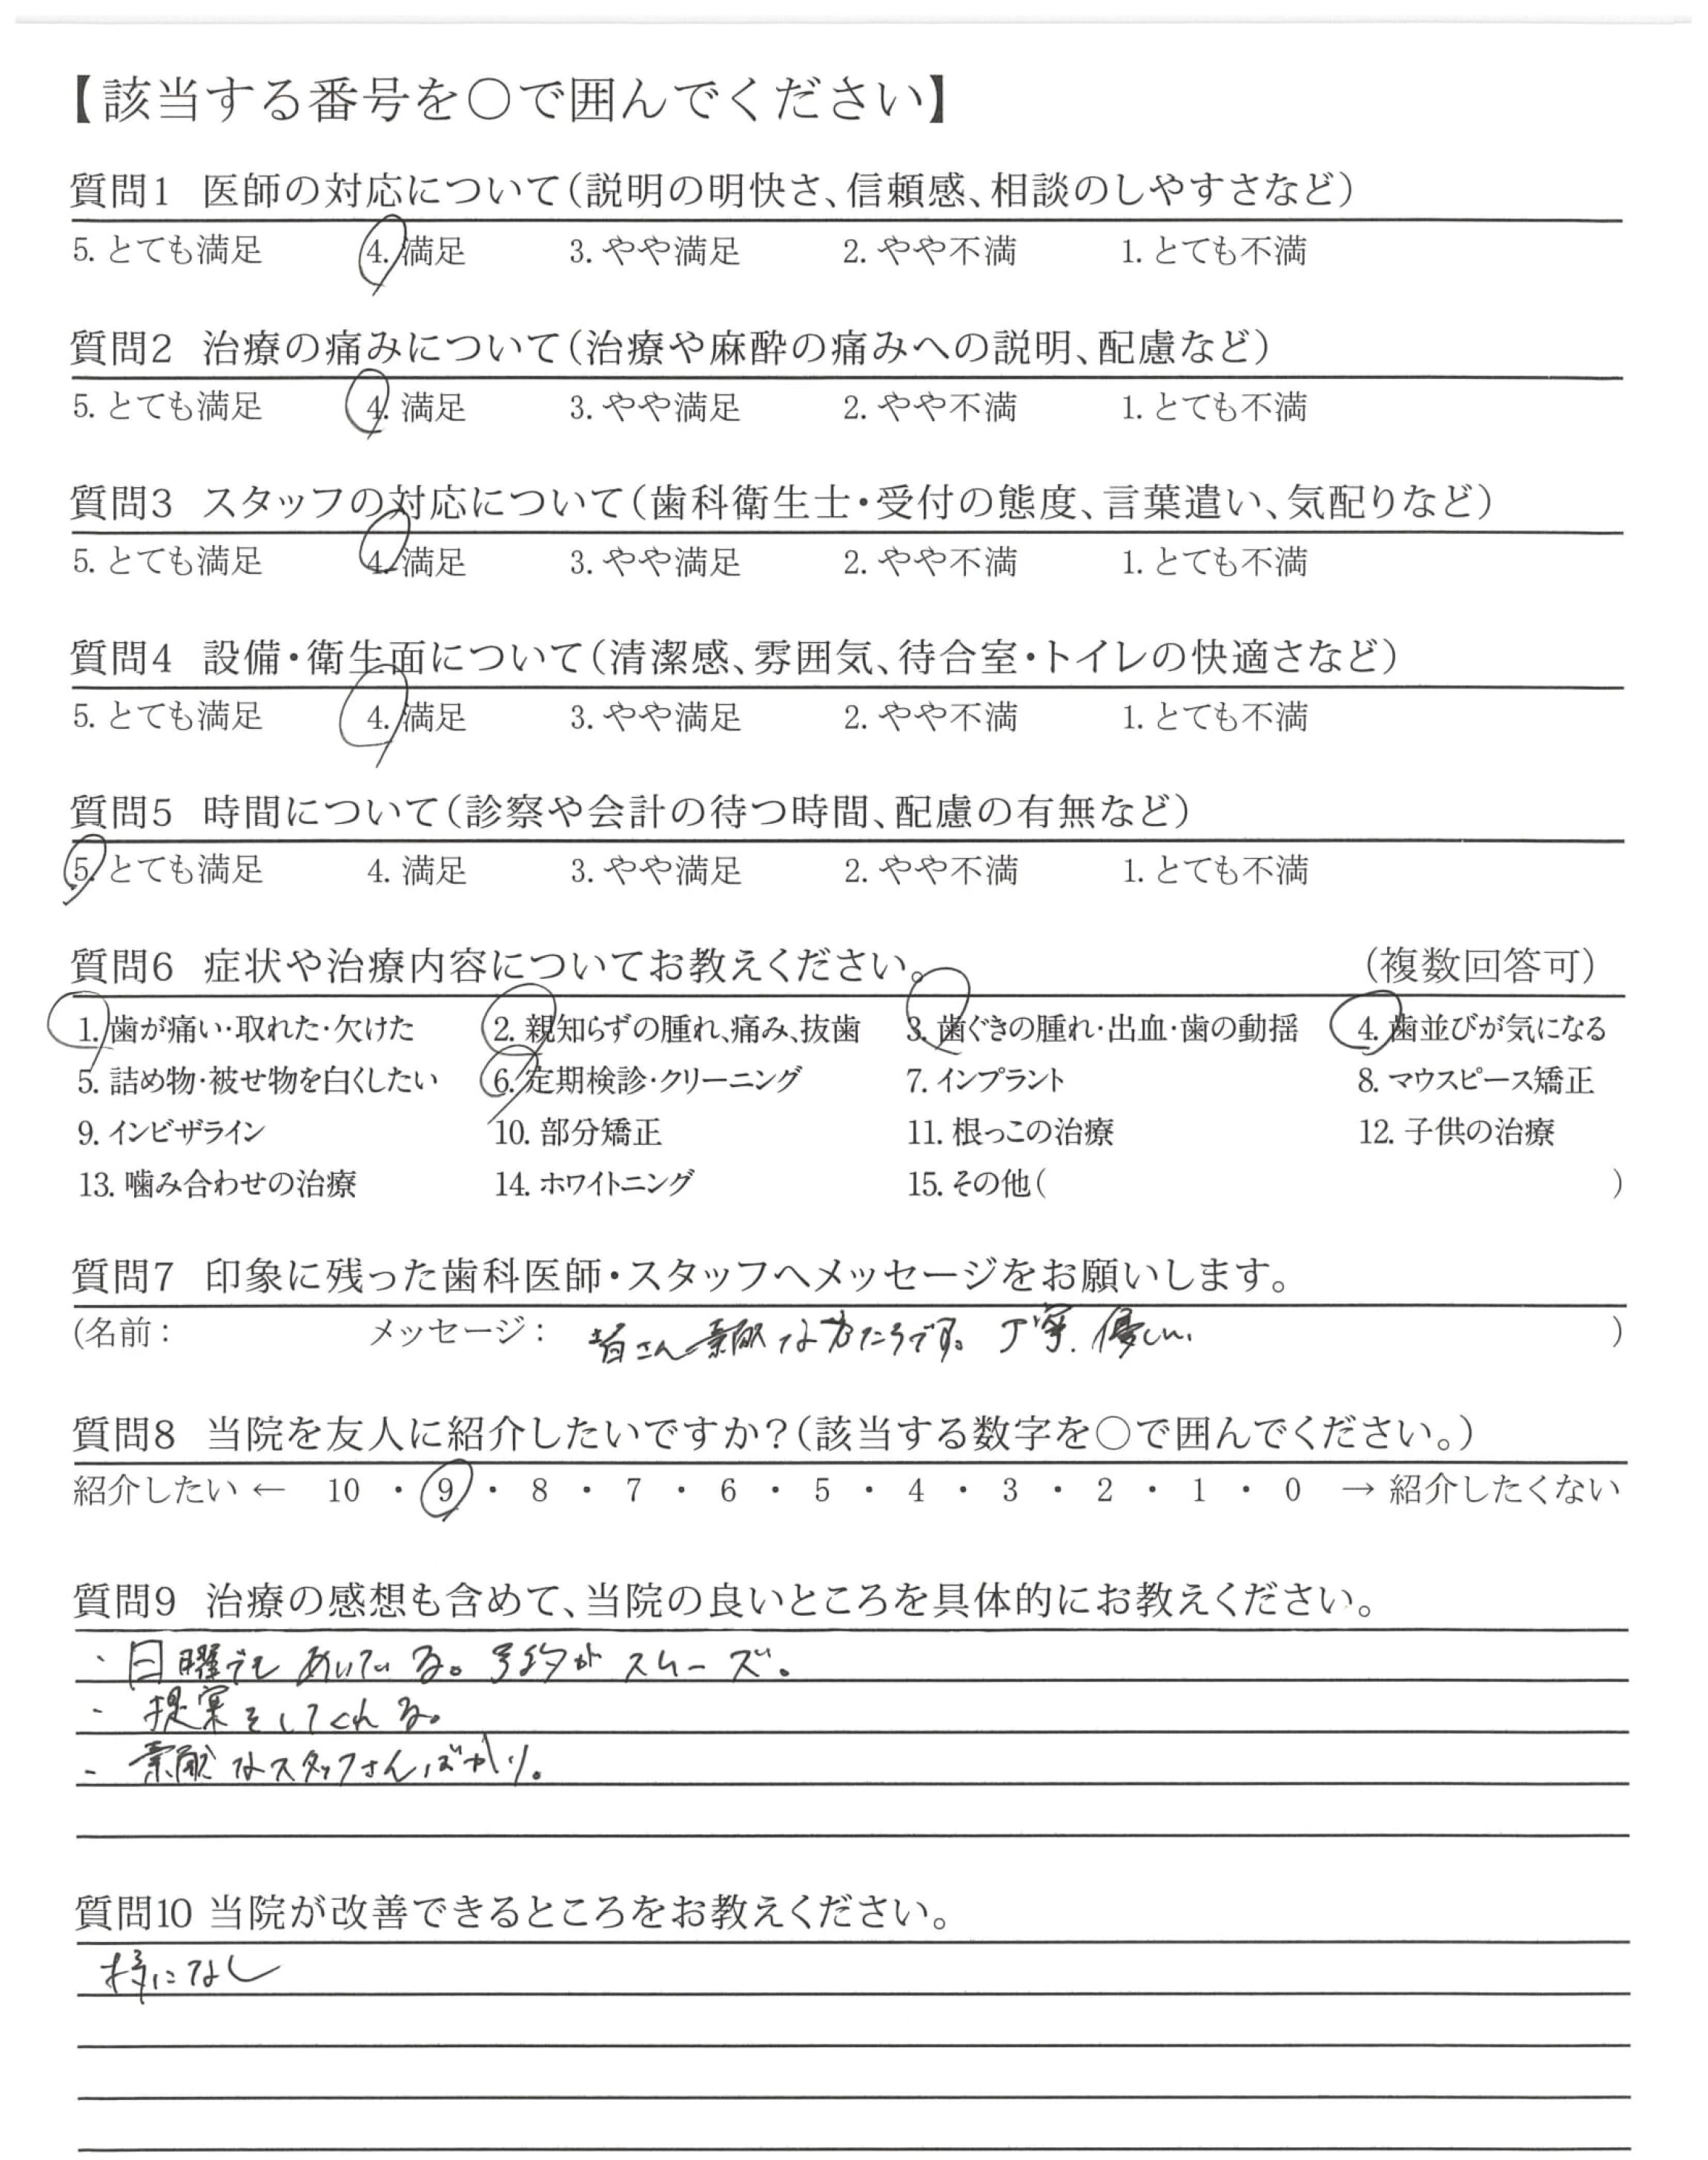 【該当する番号を○で囲んでください】
質問1 医師の対応について(説明の明快さ、信頼感、相談のしやすさなど)
5. とても満足 4. 満足 3. やや満足 2. やや不満 1. とても不満
質問2 治療の痛みについて(治療や麻酔の痛みへの説明、配慮など)
5. とても満足 4. 満足 3. やや満足 2. やや不満 1. とても不満
質問3 スタッフの対応について(歯科衛生士・受付の態度、言葉遣い、気配りなど)
5. とても満足 4. 満足 3. やや満足 2. やや不満 1. とても不満
質問4 設備・衛生面について(清潔感、雰囲気、待合室・トイレの快適さなど)
5. とても満足 4. 満足 3. やや満足 2. やや不満 1. とても不満
質問5 時間について(診察や会計の待つ時間、配慮の有無など)
5. とても満足 4. 満足 3. やや満足 2. やや不満 1. とても不満
質問6 症状や治療内容についてお教えください。 (複数回答可)
1. 歯が痛い・取れた・欠けた 2. 親知らずの腫れ、痛み、抜歯 3. 歯ぐきの腫れ・出血・歯の動揺 4. 歯並びが気になる
5. 詰め物・被せ物を白くしたい 6. 定期検診・クリーニング 7. インプラント 8. マウスピース矯正
9. インビザライン 10. 部分矯正 11. 根っこの治療 12. 子供の治療
13. 噛み合わせの治療 14. ホワイトニング 15. その他( )
質問7 印象に残った歯科医師・スタッフへメッセージをお願いします。
(名前: メッセージ: 皆さん素敵な方たちです。丁寧、優しい )
質問8 当院を友人に紹介したいですか?(該当する数字を○で囲んでください。)
紹介したい ← 10 ・ 9 ・ 8 ・ 7 ・ 6 ・ 5 ・ 4 ・ 3 ・ 2 ・ 1 ・ 0 → 紹介したくない
質問9 治療の感想も含めて、当院の良いところを具体的にお教えください。
・日曜でもあいている。予約がスムーズ。
・提案をしてくれる。
・素敵なスタッフさんばかり。
質問10 当院が改善できるところをお教えください。
特になし